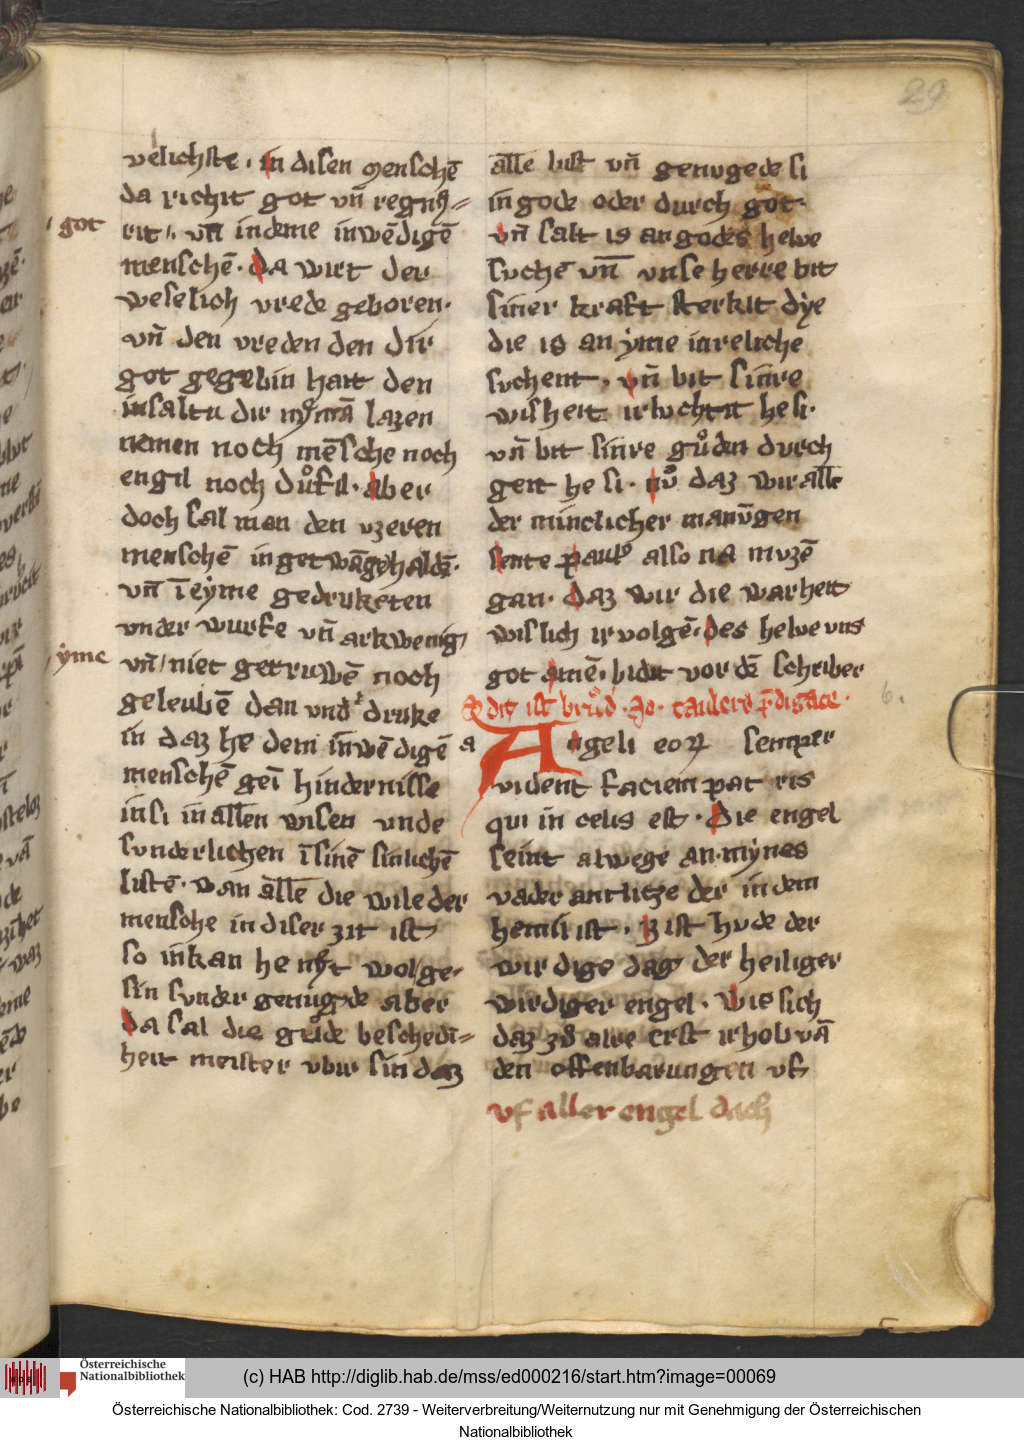 29
velichste · in disen menschē
da richit got vn̄ regny=
got
rit · vn̄ indeme inwēdigē
menschē · Da wirt der
weselich vrede geboren ·
vn̄ den vreden den dir
got gegebin hait den
insaltu dir nymā lazen
nemen noch mēsche noch
engil noch důfil · aber
doch sal man den vzeren
menschē
vn̄ ī eẏme gedruketen
vnder wurfe vn̄
ẏme
vn̄ niet getruwē noch
geleubē dan vnd̓ druke
in daz he dem inwēdigē
menschē geī hindernisse
insi in allen wisen vnde
sunderlichen ī sinē sinlichē
listē · wan alle die wile der
mensche in diser zit ist
so inkan he nyt wol ge-
sin sunder genugde aber
da sal die gůde beschedī=
heit meister vbir sin daz
alle lust vn̄ genugede si
in gode oder durch got ·
vn̄ salt is an godes helve
suchē vn̄ vnse herre bit
siner kraft sterkit dẏe
die is an ẏme inreliche
suchent · vn̄ bit sinre
wisheit irluchtit he si ·
vn̄ bit sinre gůdin durch
geit he si · nů daz wir alle
der minclicher manūgen
sente pauls also na muzē
gan · Daz wir die warheit
wislich irvolgē · des helve vns
got amē · bidit vor dē schriber
Dit ist brůd̓ · Jo · taulers p̄digate ·
6.
a
Angeli eoꝝ semper
vident faciem pat ris
qui in celis est · Die engel
seint alwege an mẏnes
vader antlitze der in dem
hemil ist · Iz ist hude der
wir dige dag der heiliger
wirdiger engel · Wie sich
daz zů alre erst irhob vā
den offenbarungen vf
vf aller engel dach
Österreichische
Nationalbibliothek
(c) HAB http://diglib.hab.de/mss/ed000216/start.htm?image=00069
Österreichische Nationalbibliothek: Cod. 2739 - Weiterverbreitung/Weiternutzung nur mit Genehmigung der Österreichischen
Nationalbibliothek